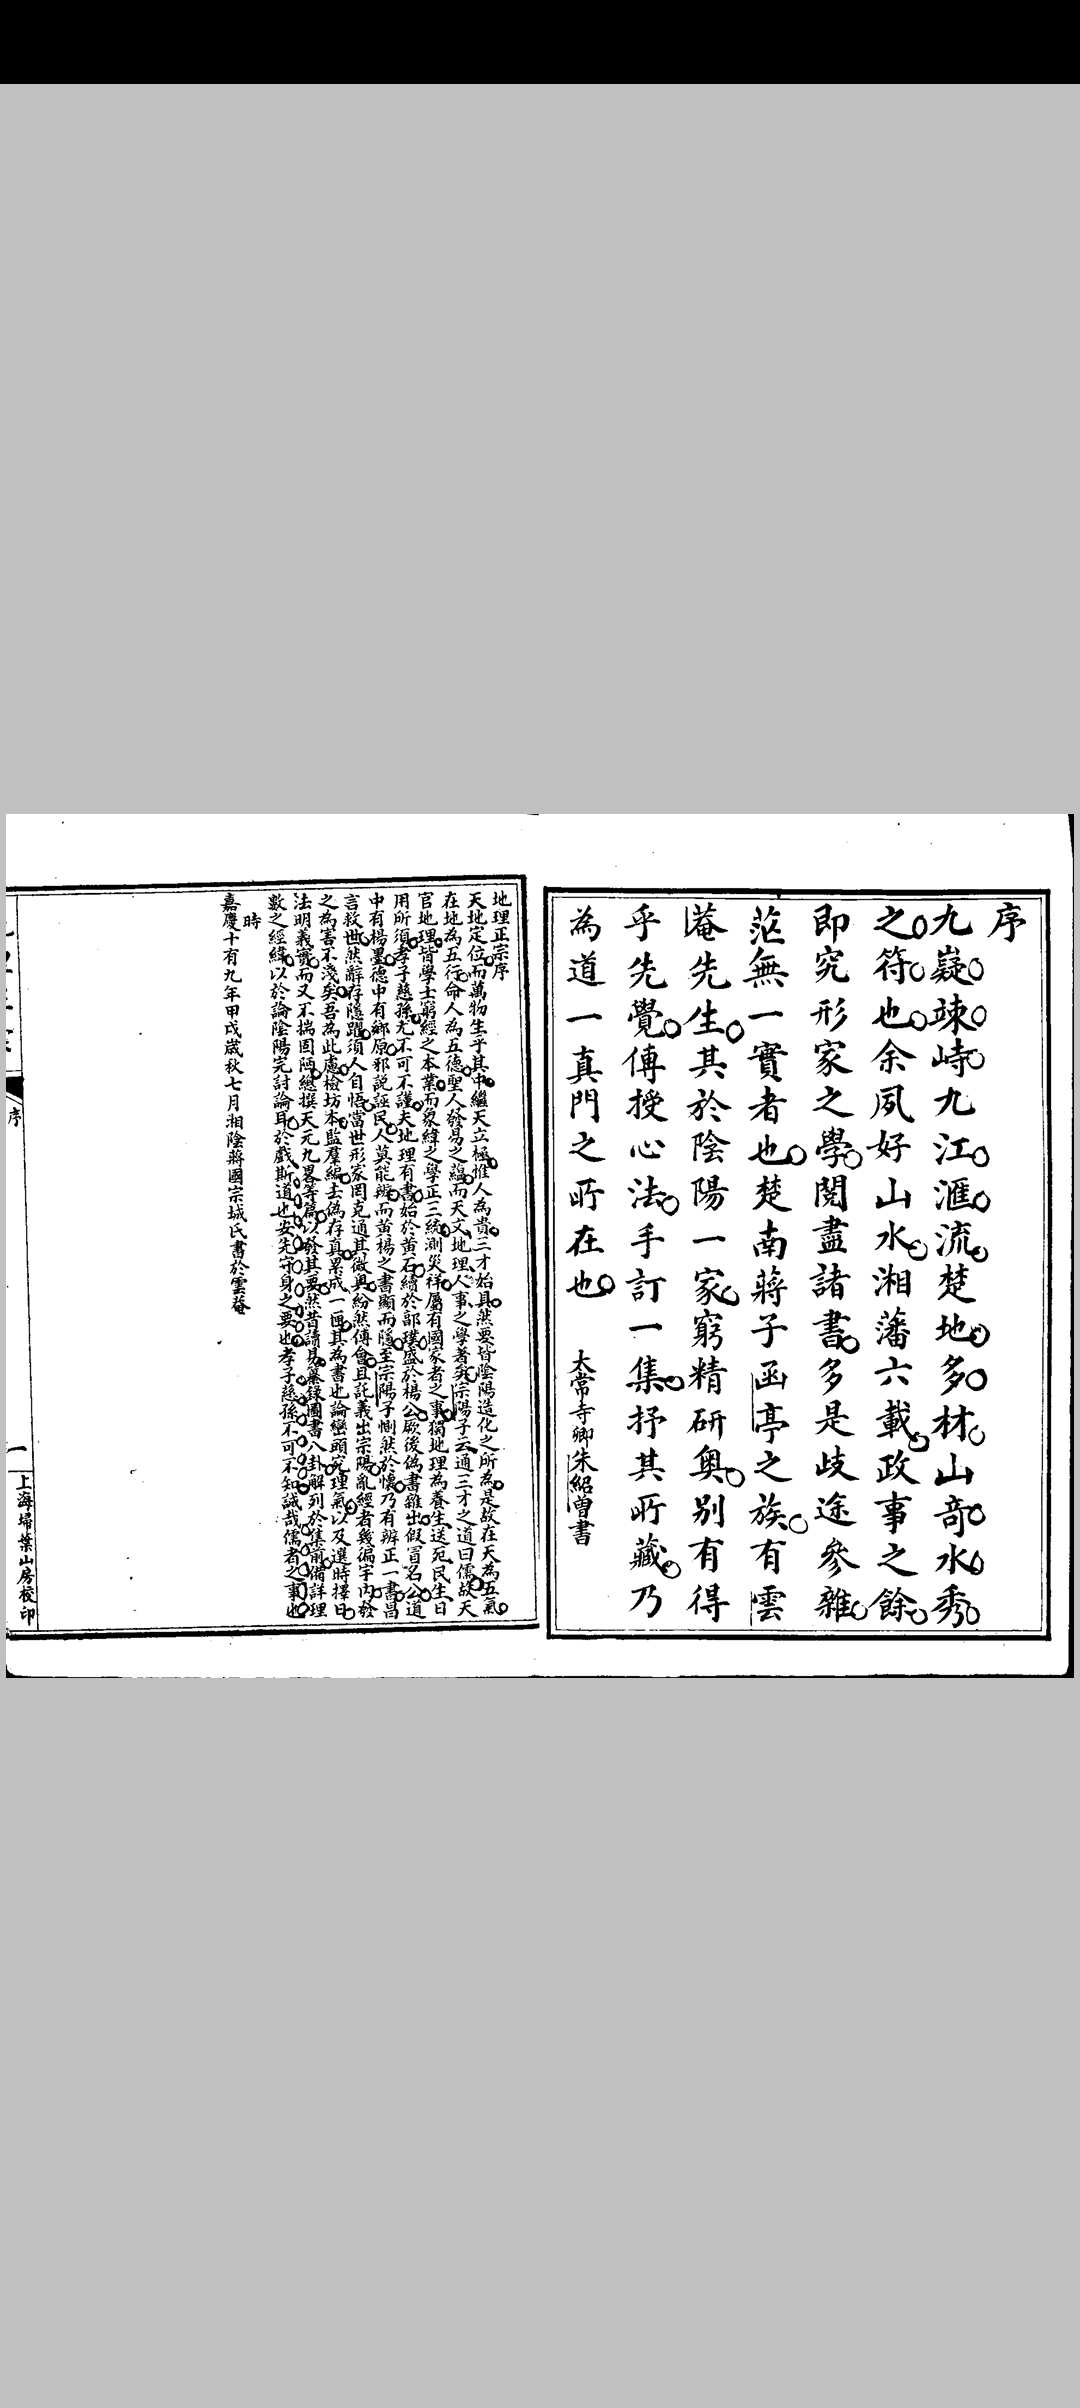 序
九嶷竦峙九江滙流楚地多材山奇水秀
之符也余夙好山水湘藩六載政事之餘
即究形家之學閱盡諸書多是歧途參雜
茫無一實者也楚南蔣子函亭之族有雲
菴先生其於陰陽一家窮精研奧別有得
乎先覺傳授心法手訂一集抒其所藏乃
為道一真門之所在也
太常寺卿朱紹曾書
地理正宗序
天地定位而萬物生乎其中繼天立極惟人為貴三才始具然要皆陰陽造化之所為是故在天為五氣
在地為五行命人為五德聖人發易之蘊而天文地理人事之學著矣宗陽子云通三才之道曰儒故天
官地理皆學士窮經之本業而象緯之學正三統測災祥屬有國家者之事獨地理為養生送死民生日
用所須孝子慈孫尤不可不謹夫地理有書始於黃石續於郭璞盛於楊公厥後偽書雜出假冒名公道
中有楊墨德中有鄉原邪說誣民人莫能辨而黃楊之書顯而隱至宗陽子惻然於懷乃有辨正一書昌
言救世然辭存隱躍須人自悟當世形家罔克通其微奧紛然傅會且託義出宗陽亂經者幾徧宇內發
之為害不淺矣吾為此慮檢坊本監羣編去偽存真累成一匭其為書也論巒頭究理氣以及選時擇日
法明義實而又不揣固陋總撰天元九畧等篇以發其要然昔請易纂錄圖書八卦解列於集前備詳理
數之經緯以於論陰陽完討論耳於戲斯道也安先守身之要也孝子慈孫不可不知誠哉儒者之事也
時
嘉慶十有九年甲戌歲秋七月湘陰蔣國宗城氏書於雲菴
序
一
上海埽葉山房校印